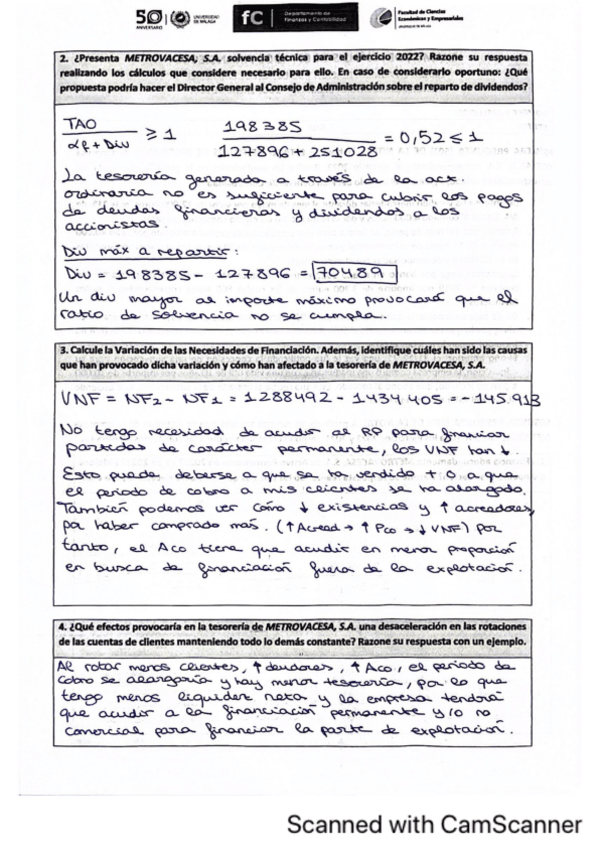 50 ANIVERSARIO
UNIVERSIDAD DE MÁLAGA
fC
Departamento de Finanzas y Contabilidad
Facultad de Ciencias Económicas y Empresariales
2. ¿Presenta METROVACESA, S.A. solvencia técnica para el ejercicio 2022? Razone su respuesta
realizando los cálculos que considere necesario para ello. En caso de considerarlo oportuno: ¿Qué
propuesta podría hacer el Director General al Consejo de Administración sobre el reparto de dividendos?
TAO / αf + Div ≥ 1 198385 / 127896 + 251028 = 0,52 ≤ 1
La tesorería generada a través de la act.
ordinaria no es suficiente para cubrir los pagos
de deudas financieras y dividendos a los
accionistas.
Div máx a repartir:
Div = 198385 - 127896 = 70489
Un div mayor al importe máximo provocará que el
ratio de solvencia no se cumpla.
3. Calcule la Variación de las Necesidades de Financiación. Además, identifique cuáles han sido las causas
que han provocado dicha variación y cómo han afectado a la tesorería de METROVACESA, S.A.
VNF = NF2 - NF1 = 1288492 - 1434405 = -145.913
No tengo necesidad de acudir al RP para financiar
partidas de carácter permanente, los VNF han ↓.
Esto puede deberse a que se ha vendido + o a que
el periodo de cobro a mis clientes se ha alargado.
También podemos ver como ↓ existencias y ↑ acreedores,
por haber comprado más. (↑ Acread → ↑ Pco → ↓ VNF) por
tanto, el Aco tiene que acudir en menor proporción
en busca de financiación fuera de la explotación.
4. ¿Qué efectos provocaría en la tesorería de METROVACESA, S.A. una desaceleración en las rotaciones
de las cuentas de clientes manteniendo todo lo demás constante? Razone su respuesta con un ejemplo.
Al rotar menos clientes, ↑ deudores, ↑ Aco, el periodo de
cobro se alargaría y hay menor tesorería, por lo que
tengo menos liquidez neta y la empresa tendrá
que acudir a la financiación permanente y/o no
comercial para financiar la parte de explotación.
Scanned with CamScanner